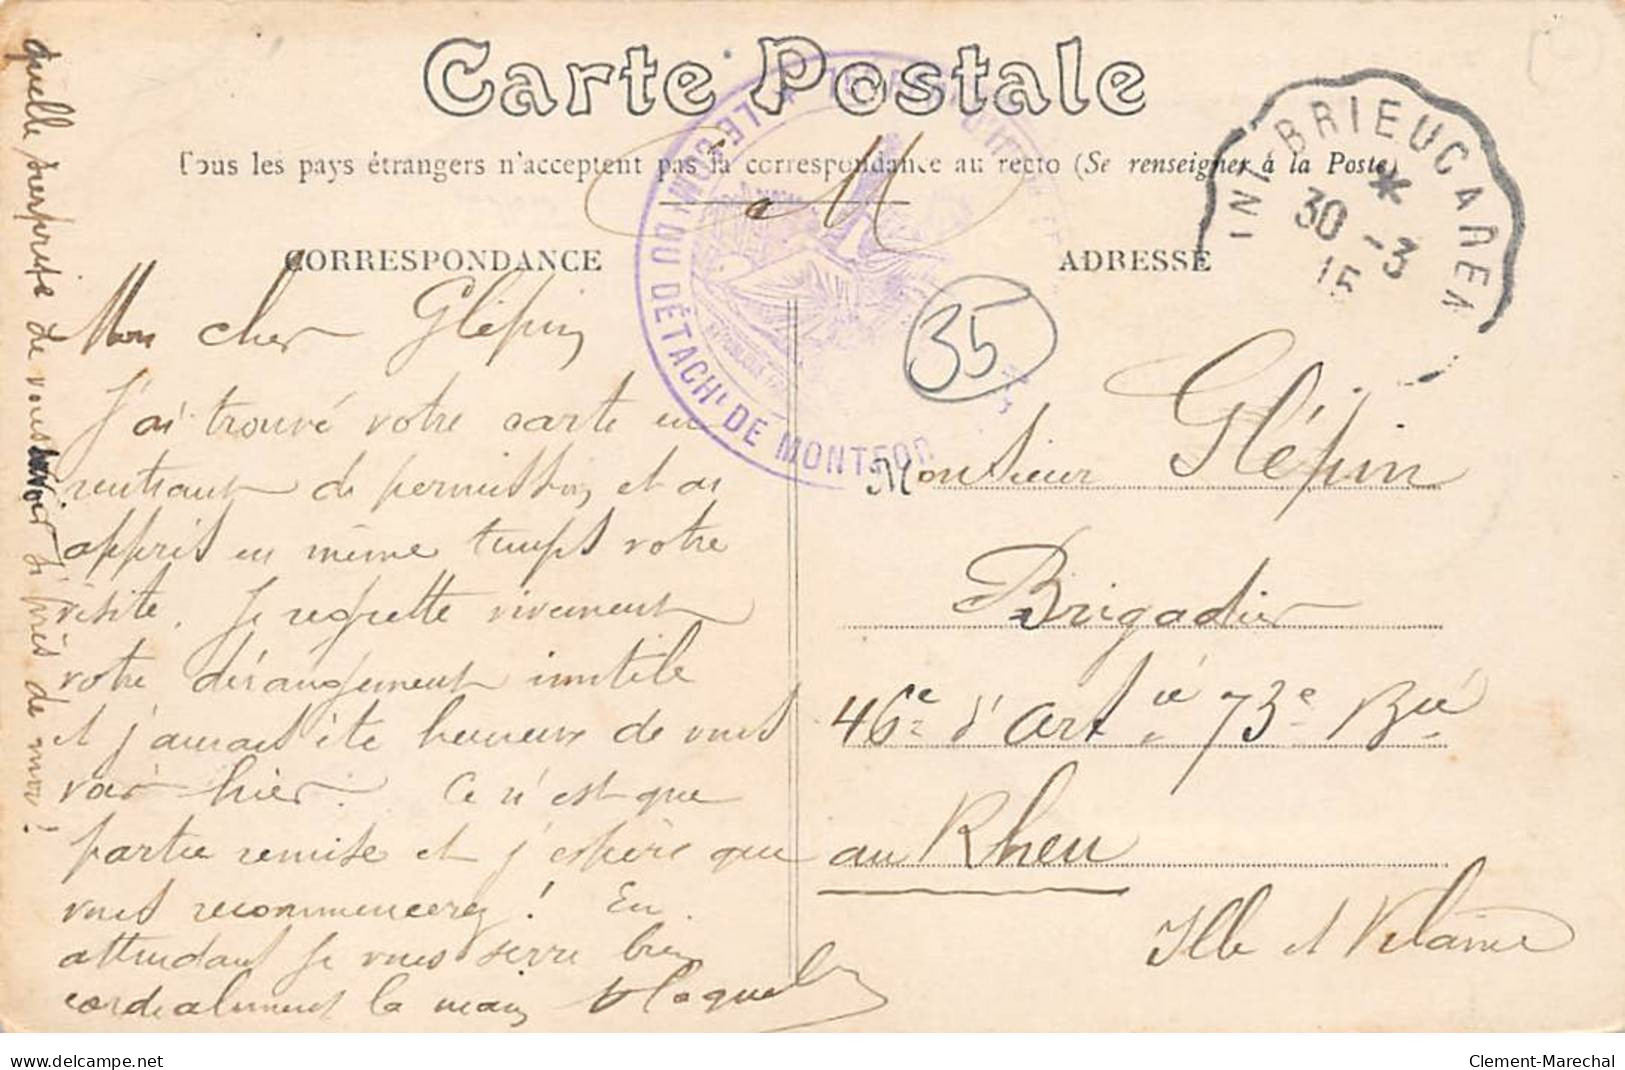 Carte Postale
Tous les pays étrangers n'acceptent pas la correspondance au recto (Se renseigner à la Poste)
M
CORRESPONDANCE
ADRESSE
LE COMT DU DÉTACHT DE MONTFOR
BRIEUC CARE
30 -3
15
35
Mon cher Glépin
J'ai trouvé votre carte en
rentrant de permission et ai
appris en même temps votre
visite. Je regrette vivement
votre dérangement inutile
et j'aurais été heureux de vous
voir hier. Ce n'est que
partie remise et j'espère que
vous recommencerez ! En
attendant je vous serre bien
cordialement la main
quelle surprise de vous savoir si près de moi !
Monsieur Glépin
Brigadier
46e d'Art ie 73e Bie
au Rheu
Ille et Vilaine
www.delcampe.net
Clement-Marechal